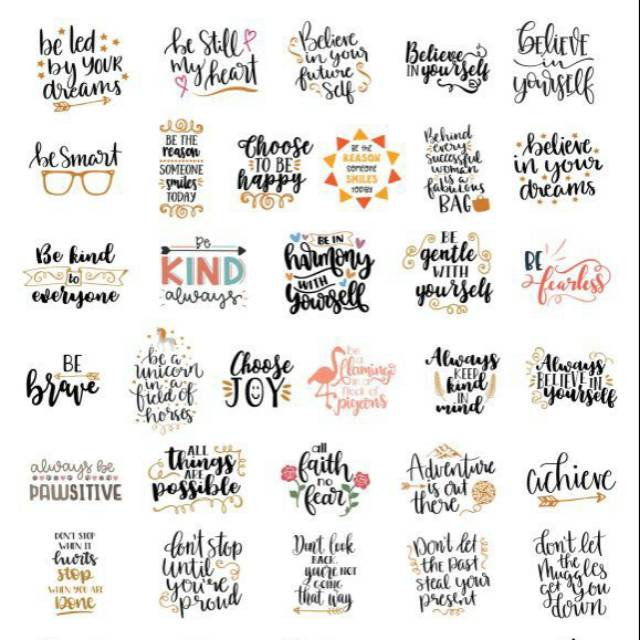 be led
by YOUR
dreams
be Still
my heart
Believe
in your
future
Self
Believe
IN yourself
BELIEVE
in
yourself
be Smart
BE THE
reason
SOMEONE
smiles
TODAY
Choose
TO BE
happy
BE THE
REASON
SOMEONE
SMILES
TODAY
Behind
every
successful
woman
is a
fabulous
BAG
believe
in your
dreams
Be kind
to
everyone
Be
KIND
always
BE IN
harmony
WITH
Yourself
BE
gentle
WITH
yourself
BE
fearless
BE
brave
be a
unicorn
in a
field of
horses
Choose
JOY
be
a
flamingo
in a
flock of
pigeons
Always
KEEP
kind
IN
mind
Always
BELIEVE IN
yourself
always be
PAWSITIVE
ALL
things
ARE
possible
all
faith
no
fear
Adventure
is out
there
achieve
DON'T STOP
WHEN IT
hurts
stop
WHEN YOU ARE
DONE
don't stop
until
you're
proud
Don't look
BACK
you're NOT
GOING
that way
Don't let
the past
steal your
present
don't let
the
muggles
get you
down